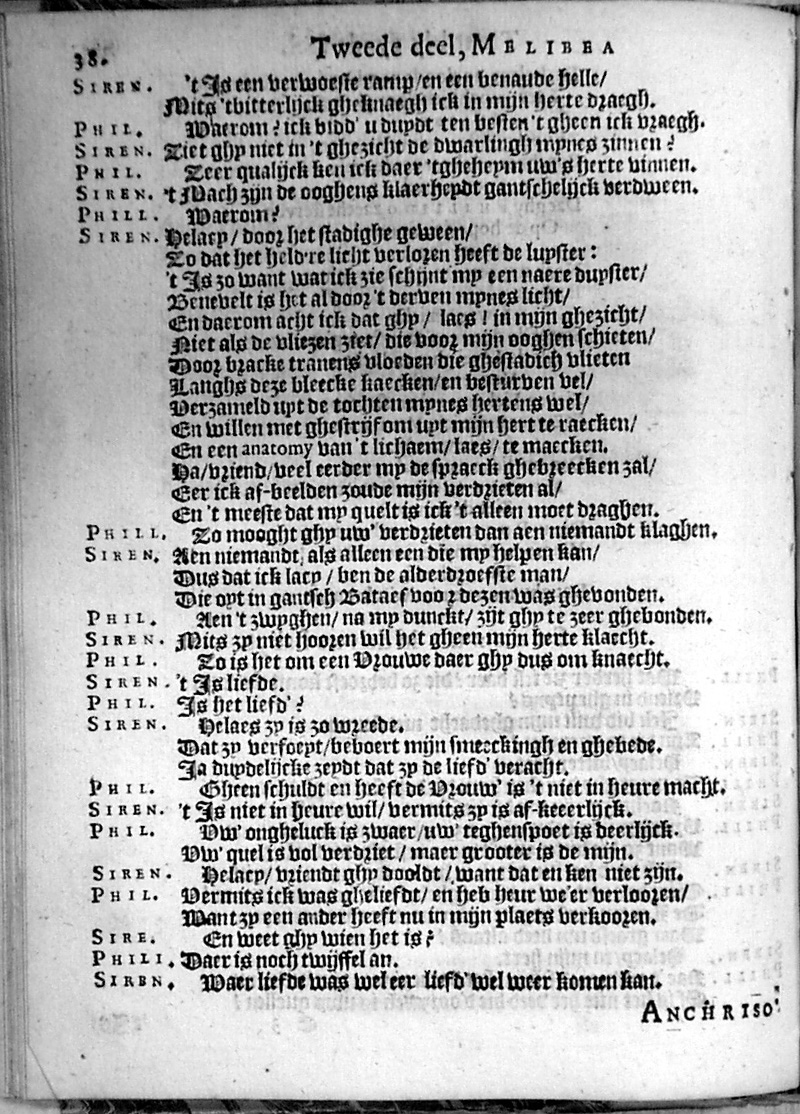 38. Tweede deel, MELIBEA
SIREN. 't Is een verwoeste ramp/en een benaude helle/
Mits 'tbitterlijck gheknaegh ick in mijn herte draegh.
PHIL. Waerom? ick bidd' u duydt ten besten 't gheen ick vraegh.
SIREN. Ziet ghy niet in 't ghezicht de dwarlingh mynes zinnen?
PHIL. Zeer qualijck ken ick daer 'tgheheym uw's herte vinnen.
SIREN. 't Mach zijn de ooghens klaerheydt gantschelijck verdween.
PHILL. Waerom?
SIREN. Helacy/ door het stadighe geween/
Zo dat het held're licht verloren heeft de luyster:
't Is zo want wat ick zie schijnt my een naere duyster/
Benevelt is het al door 't derven mynes licht/
En daerom acht ick dat ghy/ laes! in mijn ghezicht/
Niet als de vliezen ziet/ die voor mijn ooghen schieten/
Door bracke tranens vloeden die ghestadich vlieten
Langhs deze bleecke kaecken/en besturven vel/
Verzameld uyt de tochten mynes hertens wel/
En willen met ghestrijf om uyt mijn hert te raecken/
En een anatomy van 't lichaem/ laes/ te maecken.
Ha/vriend/veel eerder my de spraeck ghebreecken zal/
Eer ick af-beelden zoude mijn verdrieten al/
En 't meeste dat my quelt is ick 't alleen moet draghen.
PHILL. Zo mooght ghy uw' verdrieten dan aen niemandt klaghen.
SIREN. Aen niemandt, als alleen een die my helpen kan/
Dus dat ick lacy/ ben de alderdroefste man/
Die oyt in gantsch Bataef voor dezen was ghevonden.
PHIL. Aen 't zwyghen/ na my dunckt/ zijt ghy te zeer ghebonden.
SIREN. Mits zy niet hooren wil het gheen mijn herte klaecht.
PHIL. Zo is het om een Vrouwe daer ghy dus om knaecht.
SIREN. 't Is liefde.
PHIL. Is het liefd'?
SIREN. Helaes zy is zo wreede.
Dat zy verfoeyt/beboert mijn smeeckingh en ghebede.
Ja duydelijcke zeydt dat zy de liefd' veracht.
PHIL. Gheen schuldt en heeft de Vrouw' is 't niet in heure macht.
SIREN. 't Is niet in heure wil/ vermits zy is af-keeerlijck.
PHIL. Uw' ongheluck is zwaer/uw' teghenspoet is deerlijck.
Uw' quel is vol verdriet/ maer grooter is de mijn.
SIREN. Helacy/ vriendt ghy dooldt/ want dat en ken niet zijn.
PHIL. Vermits ick was gheliefdt/ en heb heur we'er verlooren/
Want zy een ander heeft nu in mijn plaets verkooren.
SIRE. En weet ghy wien het is?
PHILI. Daer is noch twyffel an.
SIREN. Waer liefde was wel eer liefd' wel weer komen kan.
ANCHRISO'